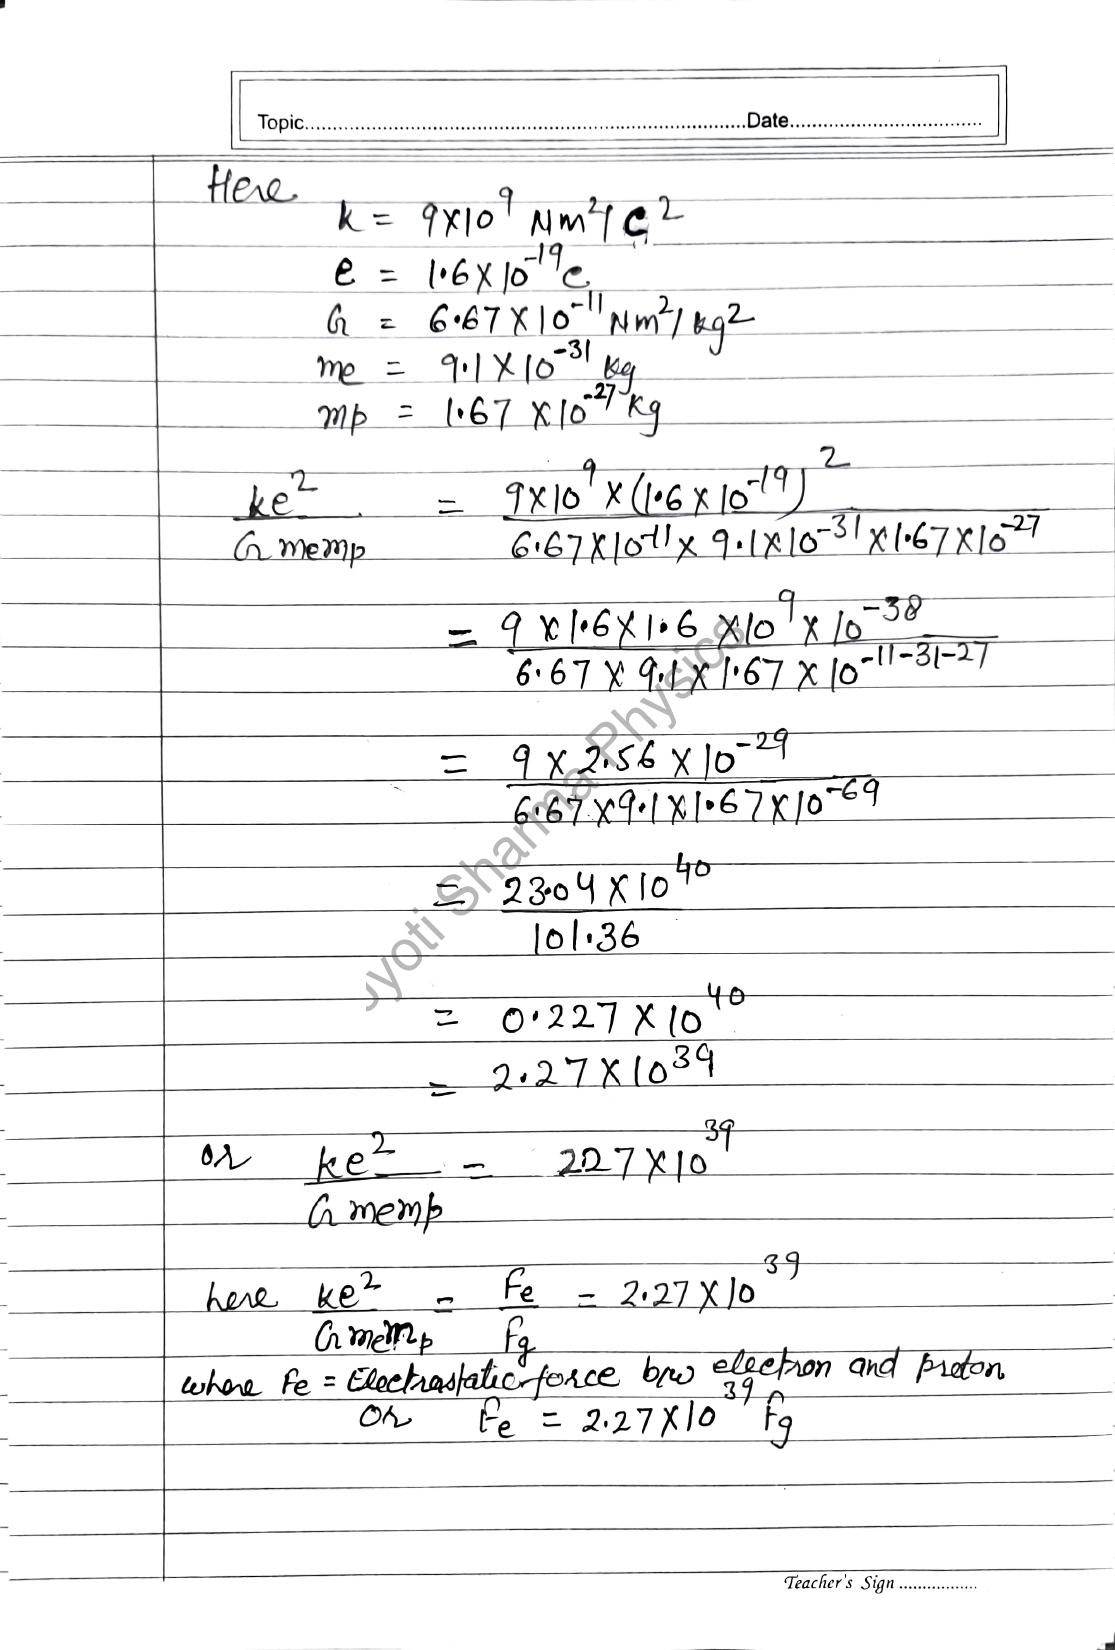 Topic..........Date..........
Here
k = 9×10⁹ Nm²/C²
e = 1.6×10⁻¹⁹C
G = 6.67×10⁻¹¹ Nm²/kg²
me = 9.1×10⁻³¹ kg
mp = 1.67×10⁻²⁷ kg
ke²/Gmemp = 9×10⁹×(1.6×10⁻¹⁹)² / 6.67×10⁻¹¹×9.1×10⁻³¹×1.67×10⁻²⁷
= 9×1.6×1.6×10⁹×10⁻³⁸ / 6.67×9.1×1.67×10⁻¹¹⁻³¹⁻²⁷
= 9×2.56×10⁻²⁹ / 6.67×9.1×1.67×10⁻⁶⁹
= 23.04×10⁴⁰ / 101.36
= 0.227×10⁴⁰
= 2.27×10³⁹
or ke²/Gmemp = 227×10³⁹
here ke²/Gmemp = Fe/Fg = 2.27×10³⁹
where Fe = Electrostatic force b/w electron and proton
or Fe = 2.27×10³⁹ Fg
Teacher's Sign ..........
Jyoti Sharma Physics